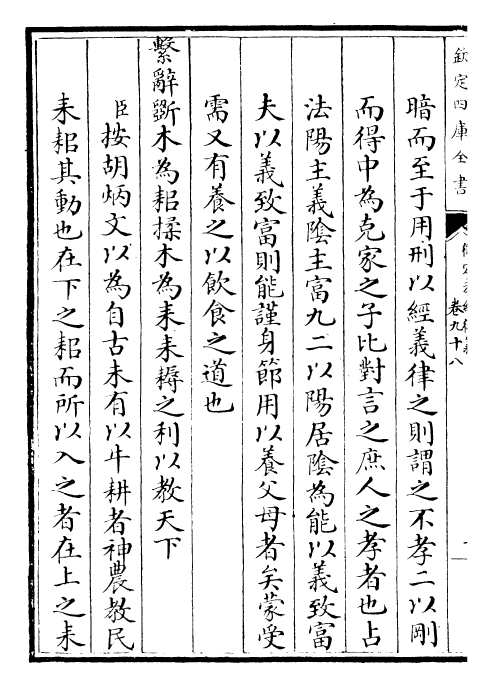 欽定四庫全書
卷九十八
暗而至于用刑以經義律之則謂之不孝二以剛
而得中為克家之子比對言之庶人之孝者也占
法陽主義陰主富九二以陽居陰為能以義致富
夫以義致富則能謹身節用以養父母者矣蒙受
需又有養之以飲食之道也
繫辭斲木為耜揉木為耒耒耨之利以教天下
臣按胡炳文以為自古未有以牛耕者神農教民
耒耜其動也在下之耜而所以入之者在上之耒